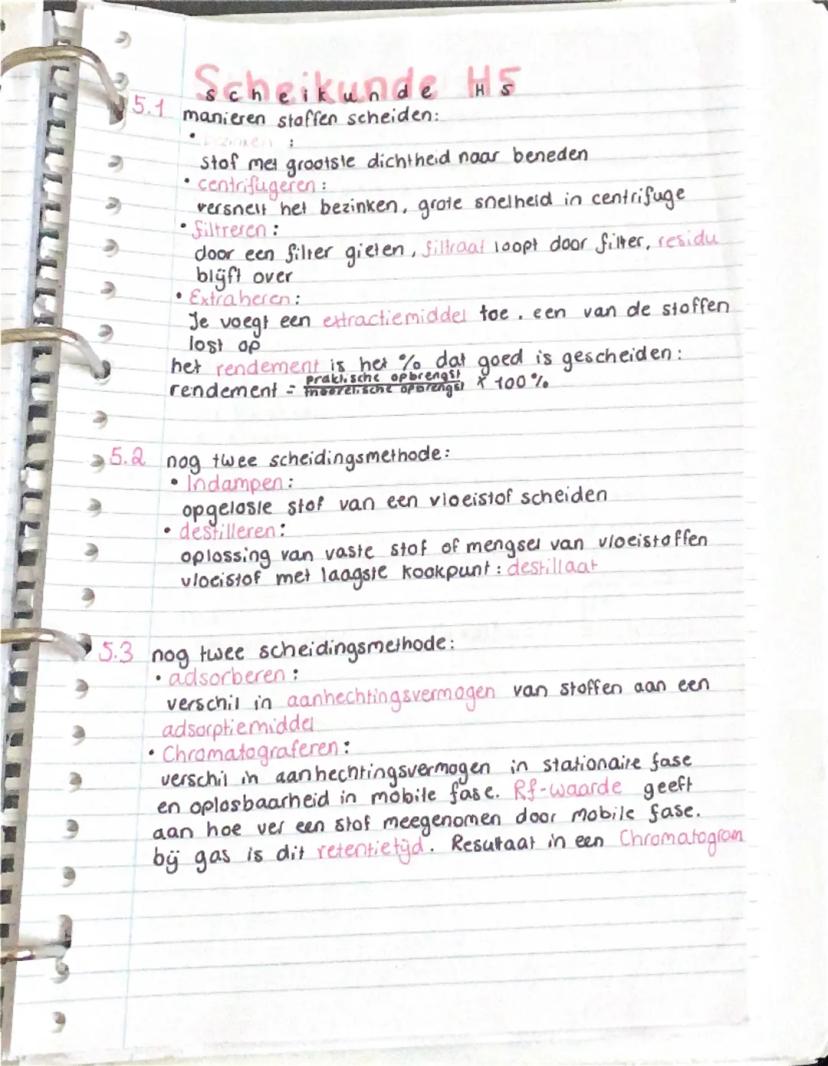 Scheikunde H5
scheikunde H5
5.1 manieren stoffen scheiden:
• bezinken :
stof met grootste dichtheid naar beneden
• centrifugeren:
versnelt het bezinken, grote snelheid in centrifuge
• filtreren:
door een filter gieten, filtraat loopt door filter, residu
blijft over
• Extraheren:
Je voegt een extractiemiddel toe. een van de stoffen
lost op
het rendement is het % dat goed is gescheiden:
rendement = praktische opbrengst / theoretische opbrengst x 100%
5.2 nog twee scheidingsmethode:
• Indampen:
opgeloste stof van een vloeistof scheiden
• destilleren:
oplossing van vaste stof of mengsel van vloeistoffen
vloeistof met laagste kookpunt: destillaat
5.3 nog twee scheidingsmethode:
• adsorberen:
verschil in aanhechtingsvermogen van stoffen aan een
adsorptiemiddel
• Chromatograferen:
verschil in aanhechtingsvermogen in stationaire fase
en oplosbaarheid in mobile fase. Rf-waarde geeft
aan hoe ver een stof meegenomen door mobile fase.
bij gas is dit retentietijd. Resultaat in een Chromatogram